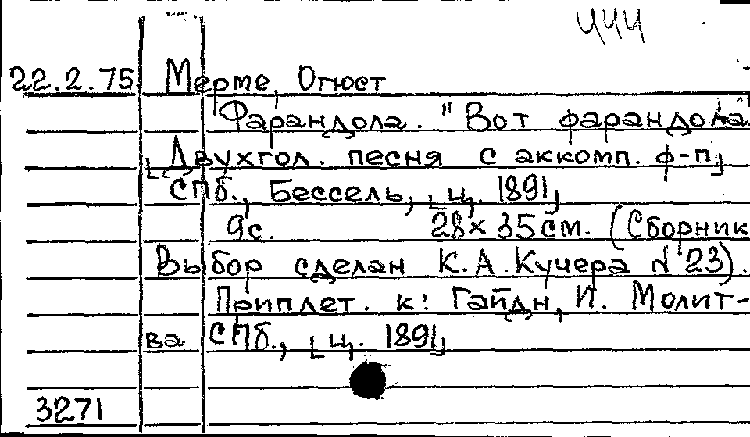 444
22.2.75 Мерме, Огюст
Фарандола. "Вот фарандола"
[Двухгол. песня с аккомп. ф-п]
СПб., Бессель, [ц. 1891]
9с. 28 x 35 см. (Сборник
Выбор сделан К.А. Кучера № 23).
Приплет. к: Гайдн, И. Молит-
ва СПб., [ц. 1891]
3271